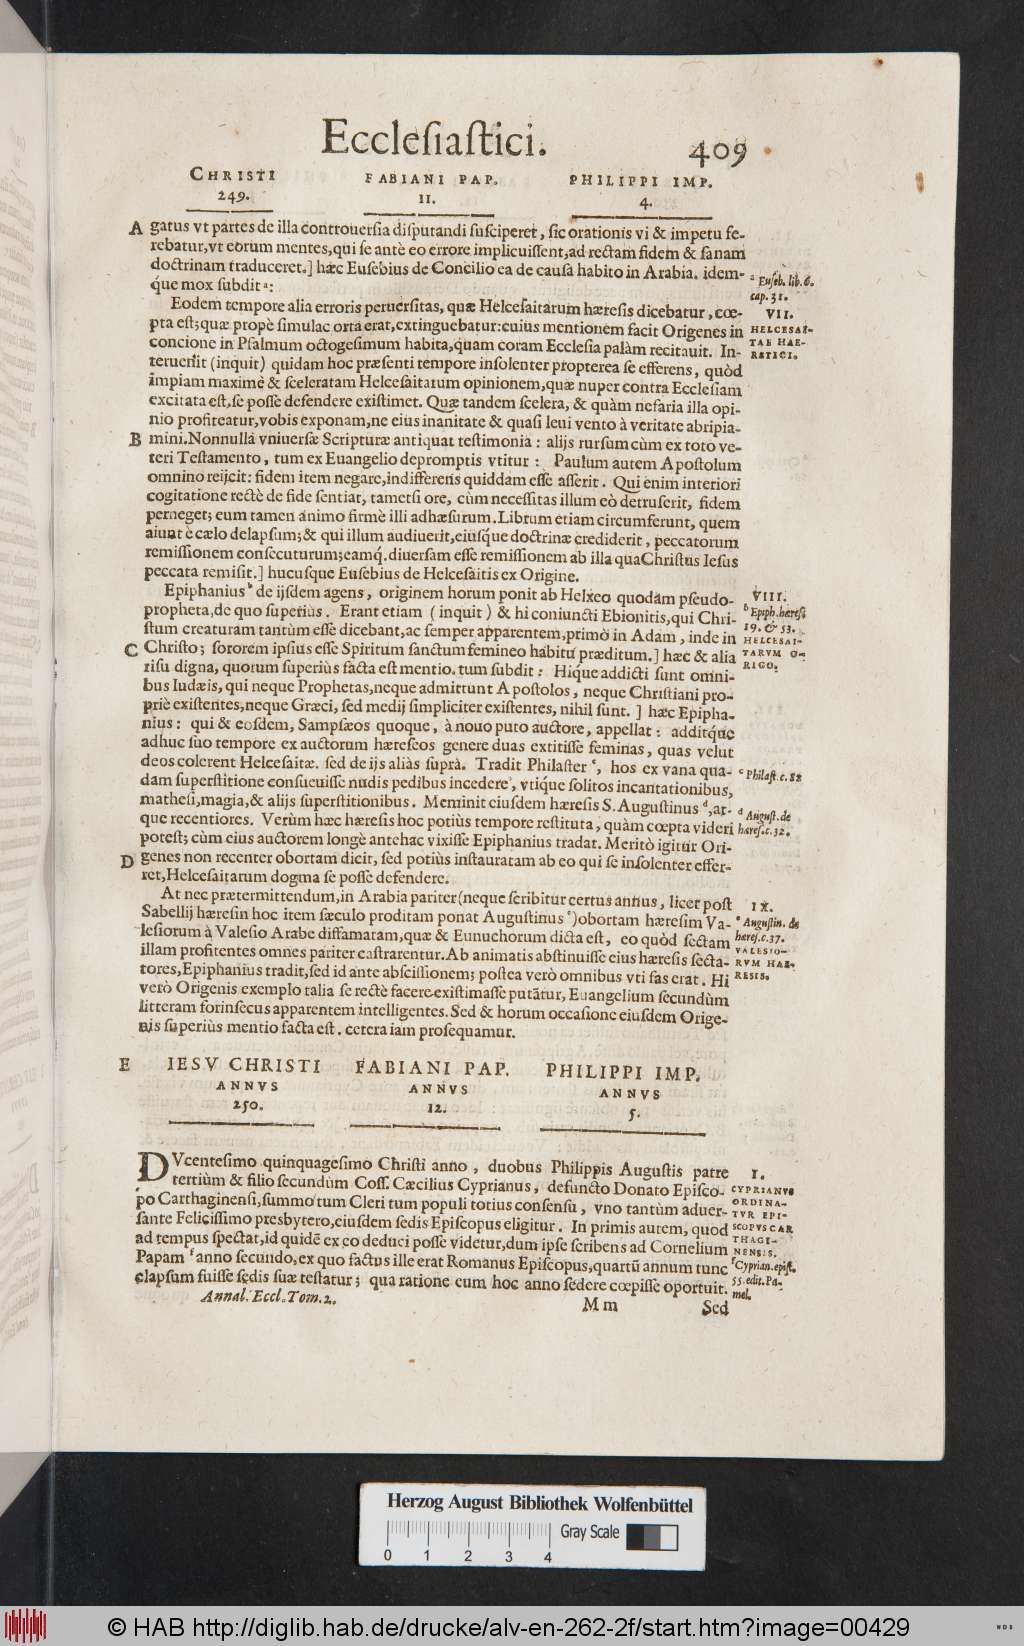 Ecclesiastici. 409
CHRISTI FABIANI PAP. PHILIPPI IMP.
249. 11. 4.
A gatus vt partes de illa controuersia disputandi susciperet, sic orationis vi & impetu fe-
rebatur, vt eorum mentes, qui se antè eo errore implicuissent, ad rectam fidem & sanam
doctrinam traduceret.] hæc Eusebius de Concilio ea de causa habito in Arabia. idem-
q́ue mox subdit ᵃ:
ᵃ Euseb. lib. 6.
cap. 31.
Eodem tempore alia erroris peruersitas, quæ Helcesaitarum hæresis dicebatur, cœ-
pta est; quæ propè simulac orta erat, extinguebatur: cuius mentionem facit Origenes in
concione in Psalmum octogesimum habita, quam coram Ecclesia palàm recitauit. In-
teruenit (inquit) quidam hoc præsenti tempore insolenter propterea se efferens, quòd
impiam maximè & sceleratam Helcesaitatum opinionem, quæ nuper contra Ecclesiam
excitata est, se posse defendere existimet. Quæ tandem scelera, & quàm nefaria illa opi-
nio profiteatur, vobis exponam, ne eius inanitate & quasi leui vento à veritate abripia-
B mini. Nonnulla vniuersæ Scripturæ antiquat testimonia: alijs rursum cùm ex toto ve-
teri Testamento, tum ex Euangelio depromptis vtitur: Paulum autem Apostolum
omnino reijcit: fidem item negare, indifferens quiddam esse asserit. Qui enim interiori
cogitatione rectè de fide sentiat, tametsi ore, cùm necessitas illum eò detruserit, fidem
perneget; eum tamen animo firmè illi adhæsurum. Librum etiam circumferunt, quem
aiunt è cælo delapsum; & qui illum audiuerit, eiusq́ue doctrinæ crediderit, peccatorum
remissionem consecuturum; eamq́. diuersam esse remissionem ab illa qua Christus Iesus
peccata remisit.] hucusque Eusebius de Helcesaitis ex Origine.
VII.
HELCESAI-
TAE HAE-
RETICI.
Epiphanius ᵇ de ijsdem agens, originem horum ponit ab Helxeo quodam pseudo-
propheta, de quo superius. Erant etiam (inquit) & hi coniuncti Ebionitis, qui Chri-
stum creaturam tantùm esse dicebant, ac semper apparentem, primò in Adam, inde in
C Christo; sororem ipsius esse Spiritum sanctum femineo habitu præditum.] hæc & alia
risu digna, quorum superiùs facta est mentio. tum subdit: Hiq́ue addicti sunt omni-
bus Iudæis, qui neque Prophetas, neque admittunt Apostolos, neque Christiani pro-
priè existentes, neque Græci, sed medij simpliciter existentes, nihil sunt.] hæc Epipha-
nius: qui & eosdem, Sampsæos quoque, à nouo puto auctore, appellat: additq́ue
adhuc suo tempore ex auctorum hæreseos genere duas extitisse feminas, quas velut
deos colerent Helcesaitæ. sed de ijs aliàs suprà. Tradit Philaster ᶜ, hos ex vana qua-
dam superstitione consueuisse nudis pedibus incedere, vtiq́ue solitos incantationibus,
mathesi, magia, & alijs superstitionibus. Meminit eiusdem hæresis S. Augustinus ᵈ, at-
que recentiores. Verùm hæc hæresis hoc potiùs tempore restituta, quàm cœpta videri
potest; cùm eius auctorem longè antehac vixisse Epiphanius tradat. Meritò igitur Ori-
D genes non recenter obortam dicit, sed potiùs instauratam ab eo qui se insolenter effer-
ret, Helcesaitarum dogma se posse defendere.
VIII.
ᵇ Epiph. hæres.
19. & 53.
HELCESAI-
TARVM O-
RIGO.
ᶜ Philast. c. 88
ᵈ August. de
hæres. c. 32.
At nec prætermittendum, in Arabia pariter (neque scribitur certus annus, licet post
Sabellij hæresin hoc item sæculo proditam ponat Augustinus ᵉ) obortam hæresim Va-
lesiorum à Valesio Arabe diffamatam, quæ & Eunuchorum dicta est, eo quòd sectam
illam profitentes omnes pariter castrarentur. Ab animatis abstinuisse eius hæresis secta-
tores, Epiphanius tradit, sed id ante abscissionem; postea verò omnibus vti fas erat. Hi
verò Origenis exemplo talia se rectè facere existimasse putātur, Euangelium secundùm
litteram forinsecus apparentem intelligentes. Sed & horum occasione eiusdem Orige-
nis superiùs mentio facta est. cetera iam prosequamur.
IX.
ᵉ Augustin. de
hæres. c. 37.
VALESIO-
RVM HAE-
RESIS.
E IESV CHRISTI FABIANI PAP. PHILIPPI IMP.
ANNVS ANNVS ANNVS
250. 12. 5.
DVcentesimo quinquagesimo Christi anno, duobus Philippis Augustis patre
tertiùm & filio secundùm Coss. Cæcilius Cyprianus, defuncto Donato Episco-
po Carthaginensi, summo tum Cleri tum populi totius consensu, vno tantùm aduer-
sante Felicissimo presbytero, eiusdem sedis Episcopus eligitur. In primis autem, quod
ad tempus spectat, id quidē ex eo deduci posse videtur, dum ipse scribens ad Cornelium
Papam ᶠ anno secundo, ex quo factus ille erat Romanus Episcopus, quartū annum tunc
elapsum fuisse sedis suæ testatur; qua ratione eum hoc anno sedere cœpisse oportuit.
I.
CYPRIANVS
ORDINA-
TVR EPI-
SCOPVS CAR
THAGI-
NENSIS.
ᶠ Cyprian. epist.
55. edit. Pa-
mel.
Annal. Eccl. Tom. 2. M m Sed
Herzog August Bibliothek Wolfenbüttel
Gray Scale
0 1 2 3 4
© HAB http://diglib.hab.de/drucke/alv-en-262-2f/start.htm?image=00429